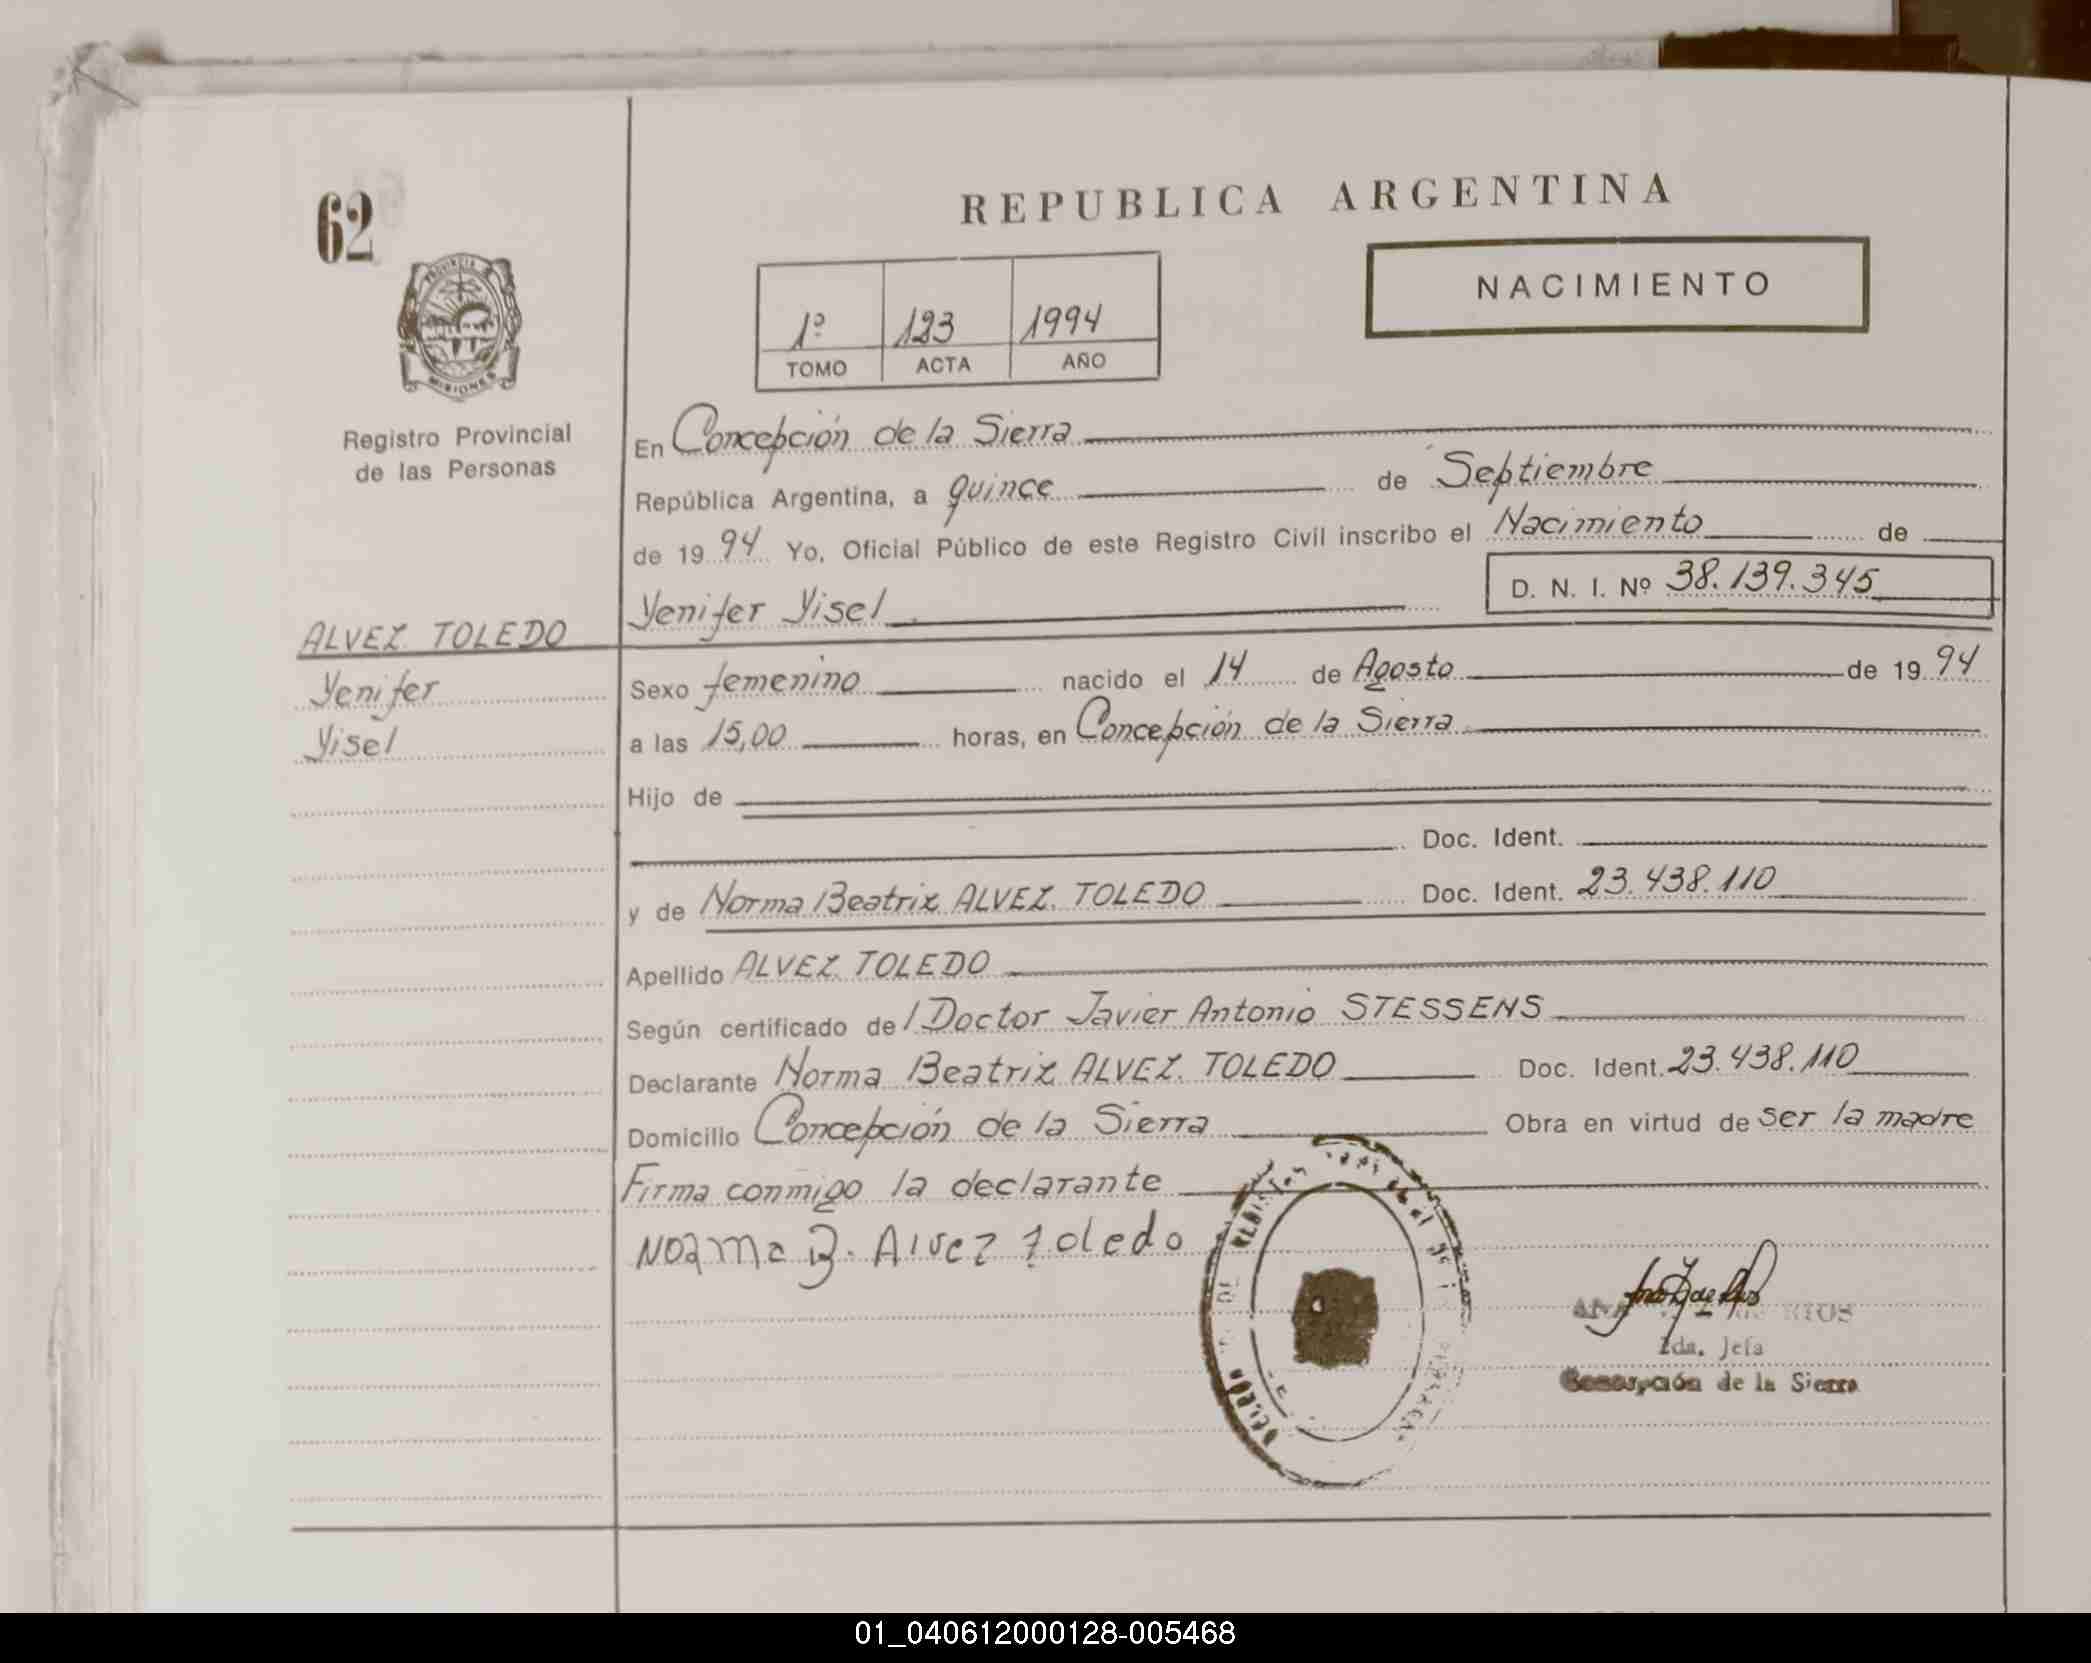 62
PROVINCIA DE
MISIONES
Registro Provincial
de las Personas
ALVEZ TOLEDO
Yenifer
Yisel
REPUBLICA ARGENTINA
NACIMIENTO
1º 123 1994
TOMO ACTA AÑO
En Concepción de la Sierra
República Argentina, a quince de Septiembre
de 19 94 Yo, Oficial Público de este Registro Civil inscribo el Nacimiento de
D. N. I. Nº 38.139.345
Yenifer Yisel
Sexo femenino nacido el 14 de Agosto de 19 94
a las 15,00 horas, en Concepción de la Sierra
Hijo de
Doc. Ident.
y de Norma Beatriz ALVEZ TOLEDO Doc. Ident. 23.438.110
Apellido ALVEZ TOLEDO
Según certificado de l Doctor Javier Antonio STESSENS
Declarante Norma Beatriz ALVEZ TOLEDO Doc. Ident. 23.438.110
Domicilio Concepción de la Sierra Obra en virtud de ser la madre
Firma conmigo la declarante
Norma B. Alvez Toledo
2da. Jefa
Concepción de la Sierra
01_040612000128-005468